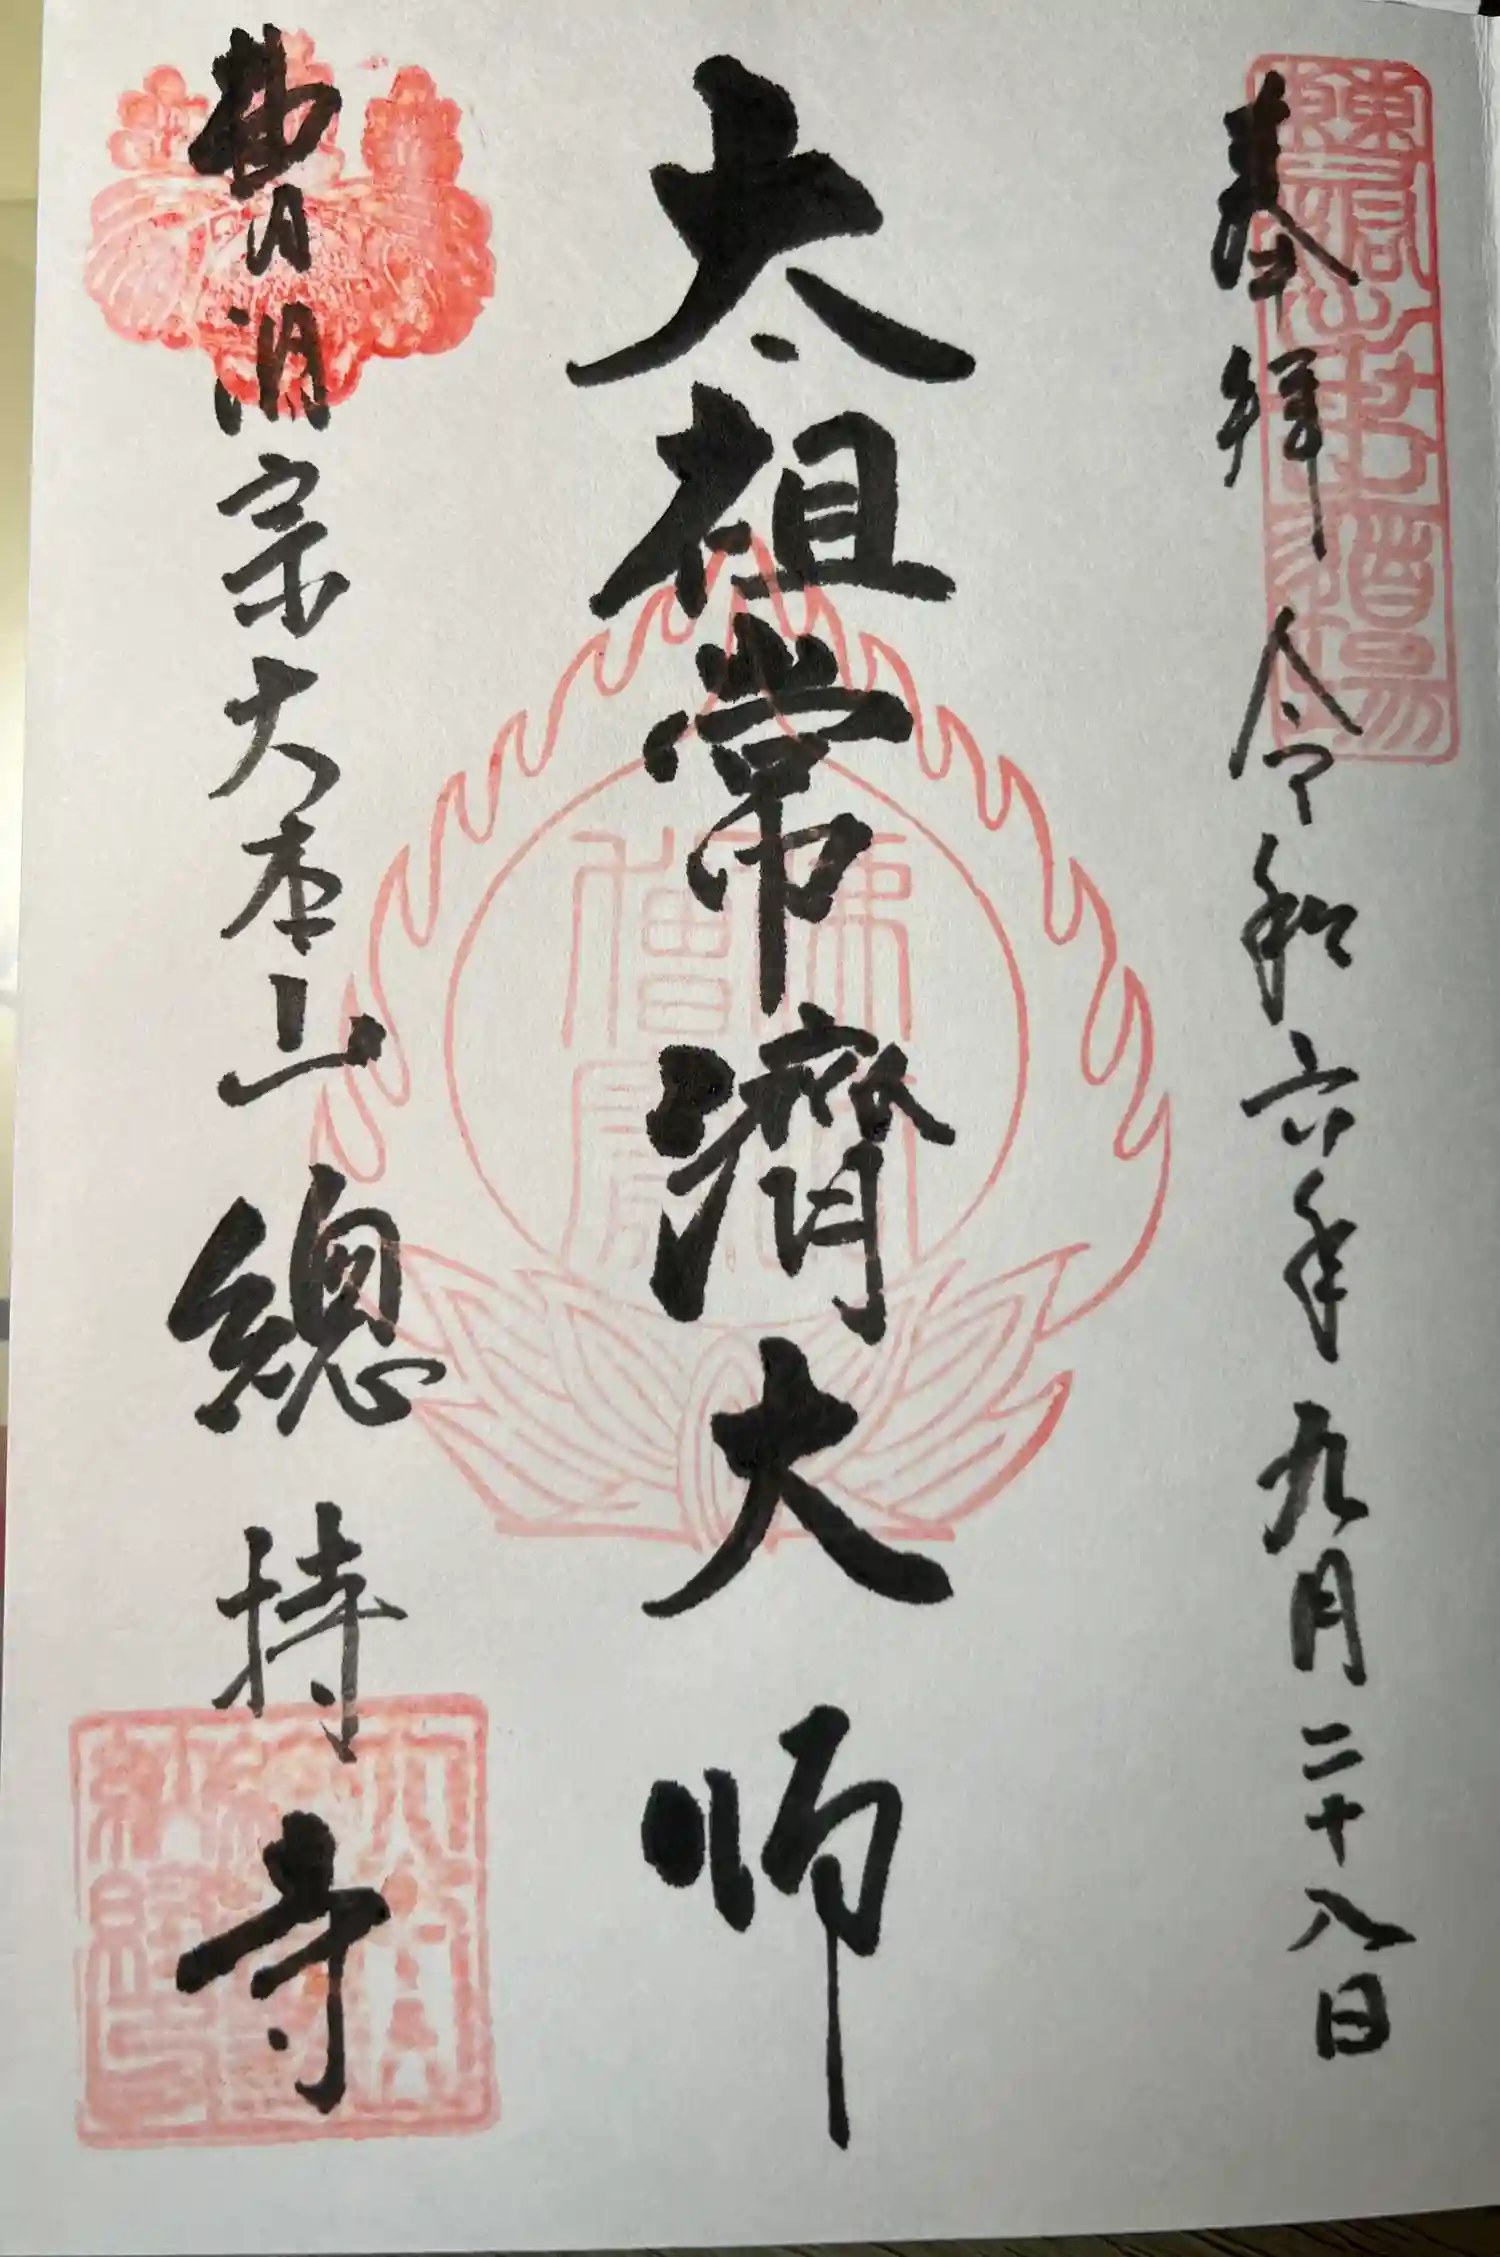 奉拝 令和六年九月二十八日
太祖常濟大師
佛法
僧寶
曹洞宗大本山 總持寺